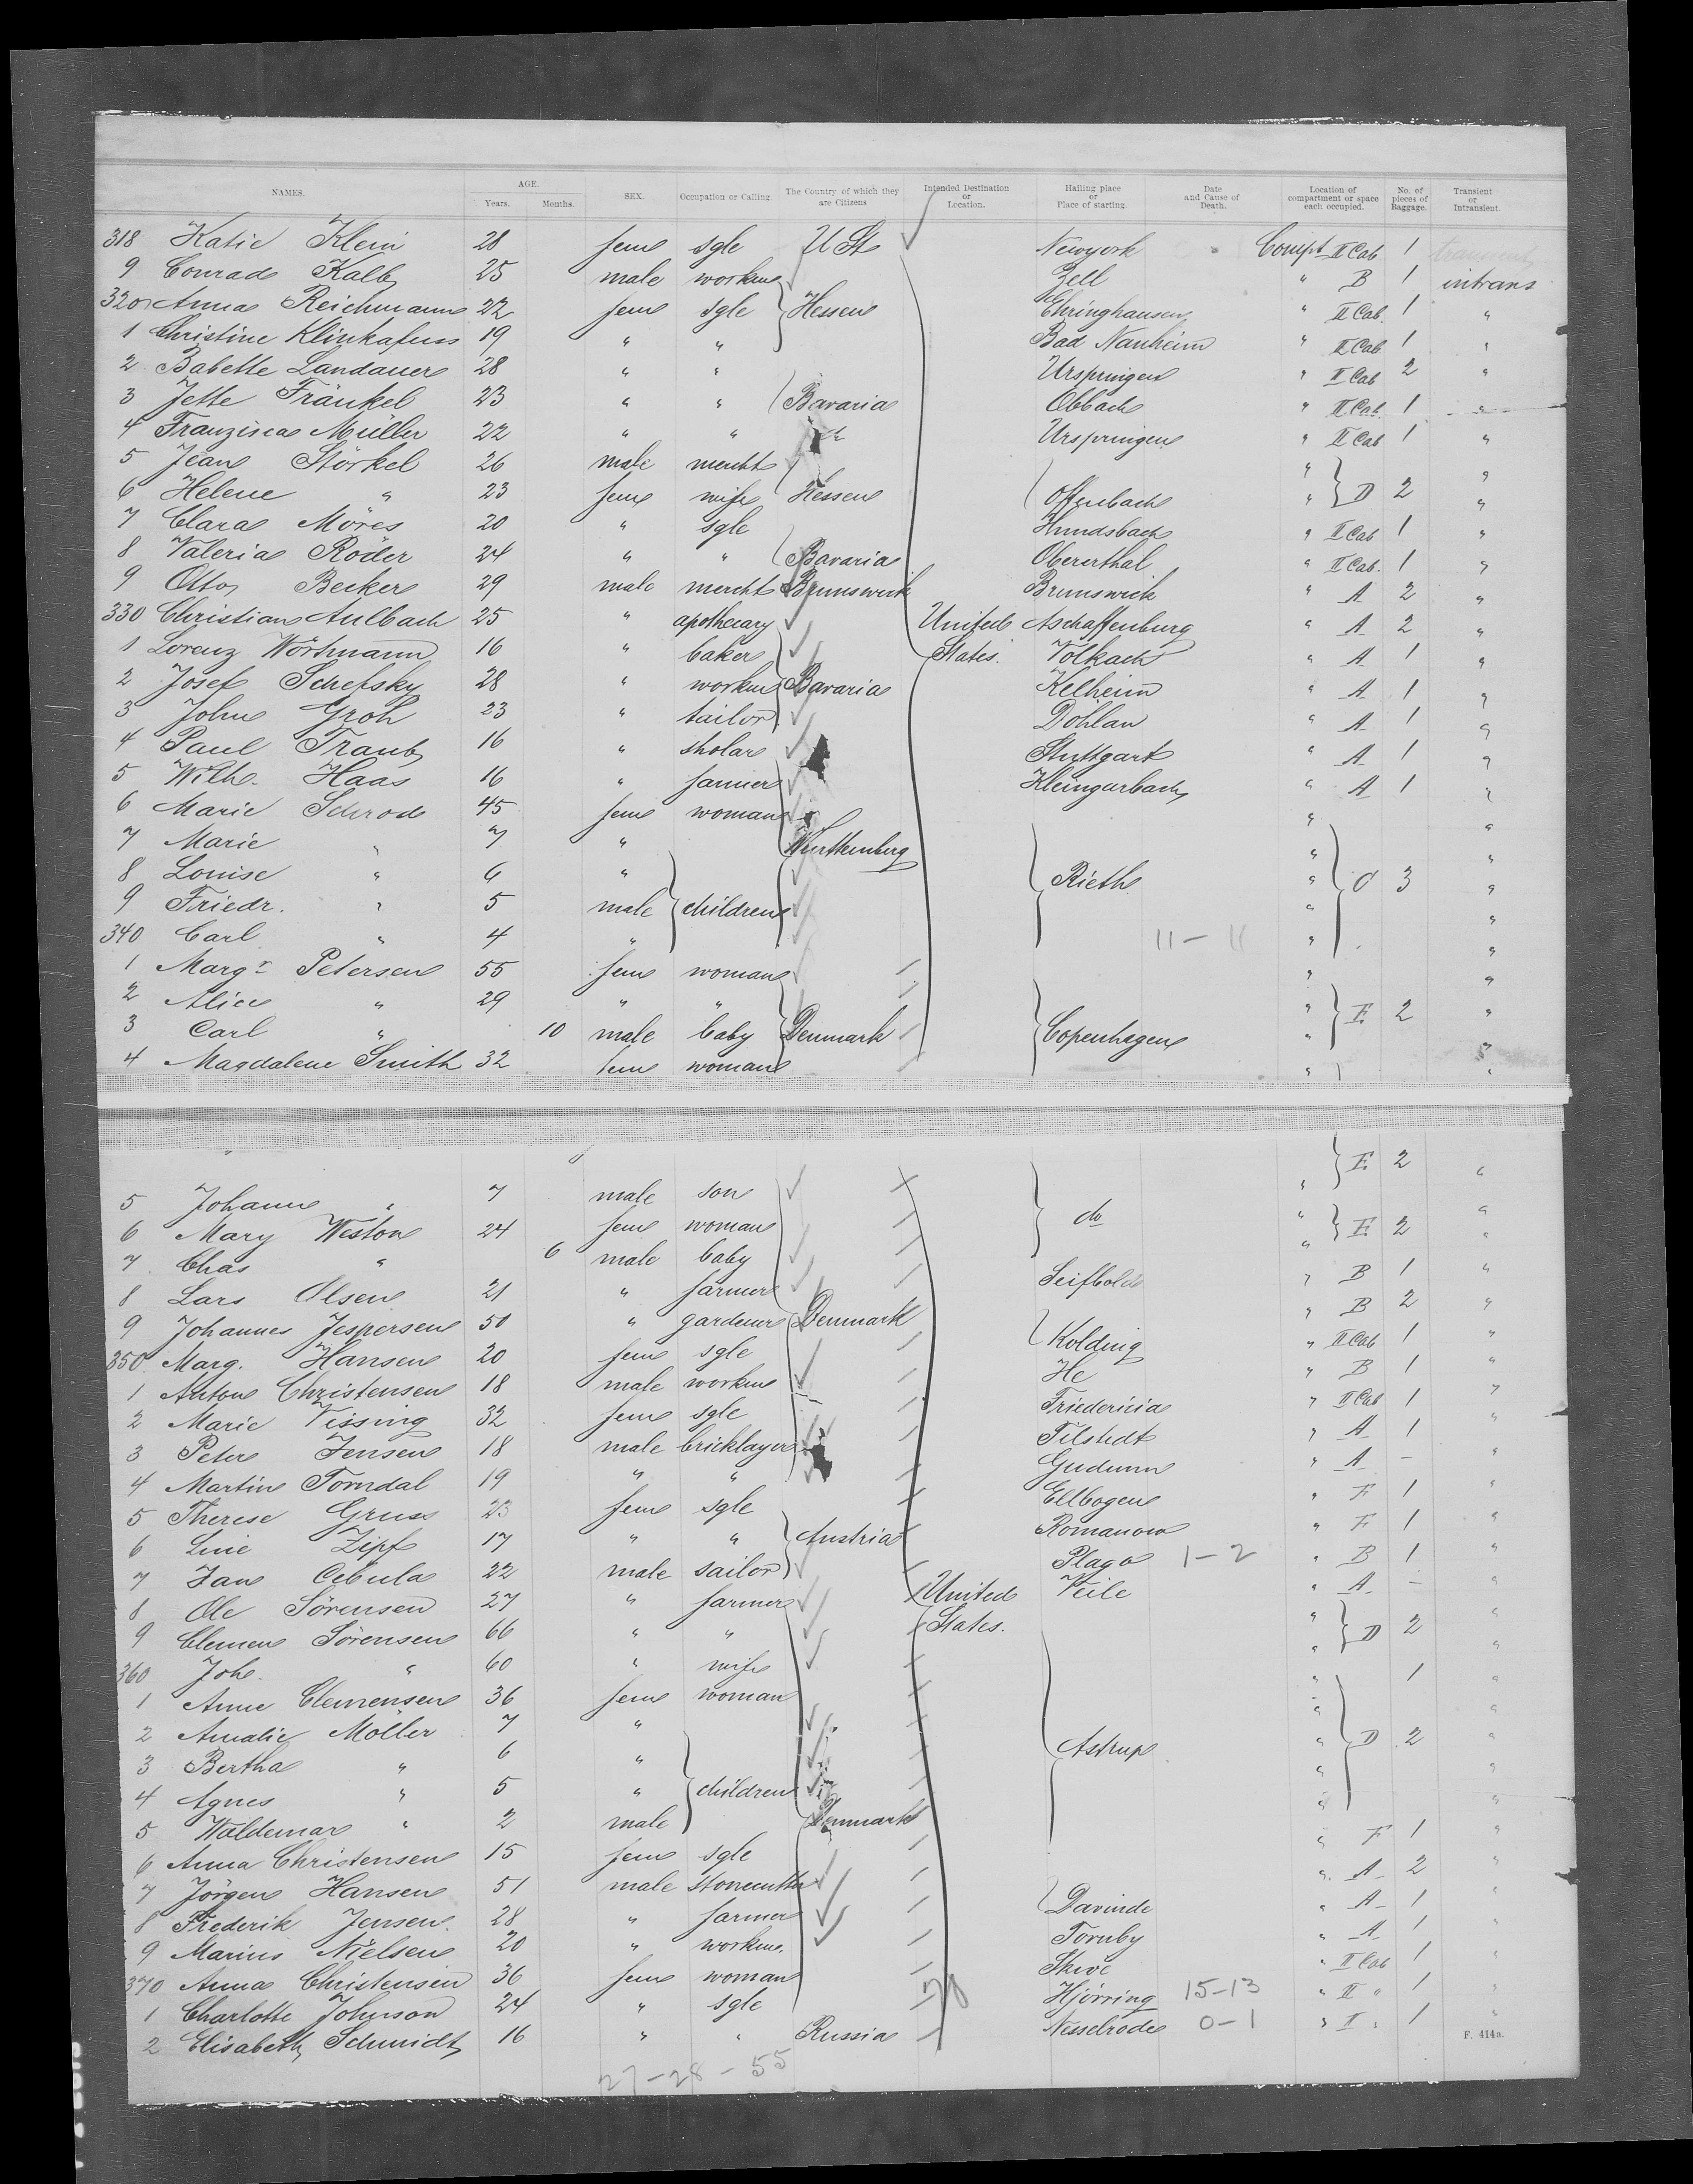 NAMES. AGE. Years. Months. SEX. Occupation or Calling The Country of which they are Citizens Intended Destination or Location. Hailing place or Place of starting. Date and Cause of Death. Location of compartment or space each occupied. No. of pieces of Baggage. Transient or Intransient.
318 Katie Klein 28 fem sgle U St Newyork Compt II Cab 1 transient
9 Conrad Kalb 25 male workm Zell " B 1 intrans
320 Anna Reichmann 22 fem sgle Hessen Ehringhausen " II Cab. 1 "
1 Christine Klinkafuss 19 " " Bad Nauheim " II Cab 1 "
2 Babette Landauer 28 " " Urspringen " II Cab 2 "
3 Jette Fränkel 23 " " Bavaria Obbach " II Cab. 1 "
4 Franzisca Müller 22 " " Urspringen " II Cab 1 "
5 Jean Störkel 26 male mercht " "
6 Helene " 23 fem wife Hessen Offenbach " D 2 "
7 Clara Möres 20 " sgle Hundsbach " II Cab 1 "
8 Valeria Röder 24 " " Bavaria Obererthal " II Cab. 1 "
9 Otto Becker 29 male mercht Brunswick Brunswick " A 2 "
330 Christian Aulbach 25 " apothecary United Aschaffenburg " A 2 "
1 Lorenz Wörtmann 16 " baker States. Volkach " A 1 "
2 Josef Schefsky 28 " workm Bavaria Kelheim " A 1 "
3 John Groh 23 " tailor Döhlau " A 1 "
4 Paul Traub 16 " sholar Stuttgart " A 1 "
5 Wilh. Haas 16 " farmer Kleingarbach " A 1 "
6 Marie Schrode 45 fem woman " "
7 Marie " 7 " Wurttemberg " "
8 Louise " 6 " Rieth " C 3 "
9 Friedr. " 5 male children " "
340 Carl " 4 " 11-11 " "
1 Margr Petersen 55 fem woman " "
2 Alice " 29 " " " E 2 "
3 Carl " 10 male baby Denmark Copenhagen " "
4 Magdalene Smith 32 fem woman " "
E 2 "
5 Johann " 7 male son "
6 Mary Weston 24 fem woman do " E 2 "
7 Chas " 6 male baby " "
8 Lars Olsen 21 " farmer Seifbold " B 1 "
9 Johannes Jespersen 50 " gardener Denmark " B 2 "
350 Marg. Hansen 20 fem sgle Kolding " II Cab 1 "
1 Anton Christensen 18 male workm He " B 1 "
2 Marie Vissing 32 fem sgle Fridericia " II Cab 1 "
3 Peter Jensen 18 male bricklayer Tilstedt " A 1 "
4 Martin Torndal 19 " " Gudumn " A - "
5 Therese Gruss 23 fem sgle Ellbogen " F 1 "
6 Line Zipf 17 " " Austria Romanow " F 1 "
7 Jan Cebula 22 male sailor Plago 1-2 " B 1 "
8 Ole Sörensen 27 " farmer United Veile " A - "
9 Clemen Sörensen 66 " " States. " D 2 "
360 Joh. " 60 " wife " "
1 Anne Clemensen 36 fem woman " 1 "
2 Amalie Möller 7 " " "
3 Bertha " 6 " Astrup " D 2 "
4 Agnes " 5 " children " "
5 Waldemar " 2 male Denmark " "
6 Anna Christensen 15 fem sgle " F 1 "
7 Jörgen Hansen 51 male stonecutter " A 2 "
8 Frederik Jensen 28 " farmer Davinde " A 1 "
9 Marius Nielsen 20 " workm. Tornby " A 1 "
370 Anna Christensen 36 fem woman Skive " II Cab 1 "
1 Charlotte Johnson 24 " sgle Hjörring 15-13 " II " 1 "
2 Elisabeth Schmidt 16 " " Russia Nesselrode 0-1 " I " 1 "
F. 414a.
27-28-55